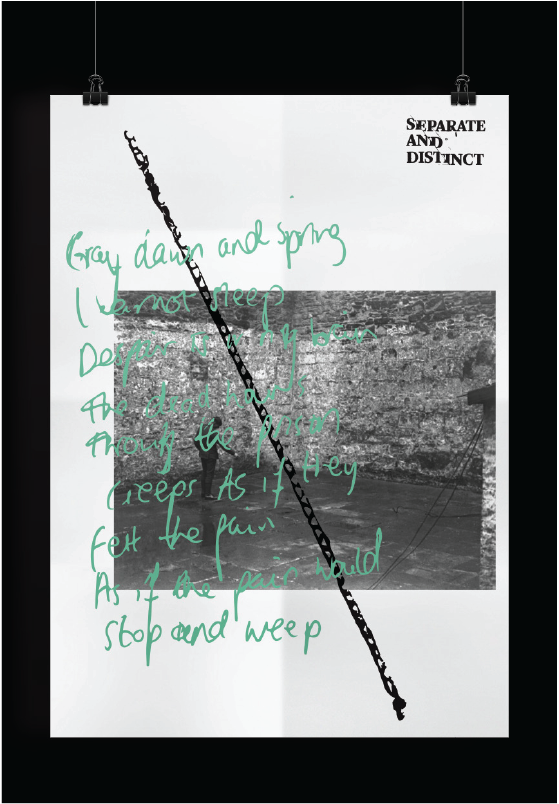 SEPARATE
AND
DISTINCT
Gray dawn and spring
I cannot sleep
Despair is in my brain
the hours
through the prison
Creeps As if they
felt the pain
As if the pain would
stop and weep